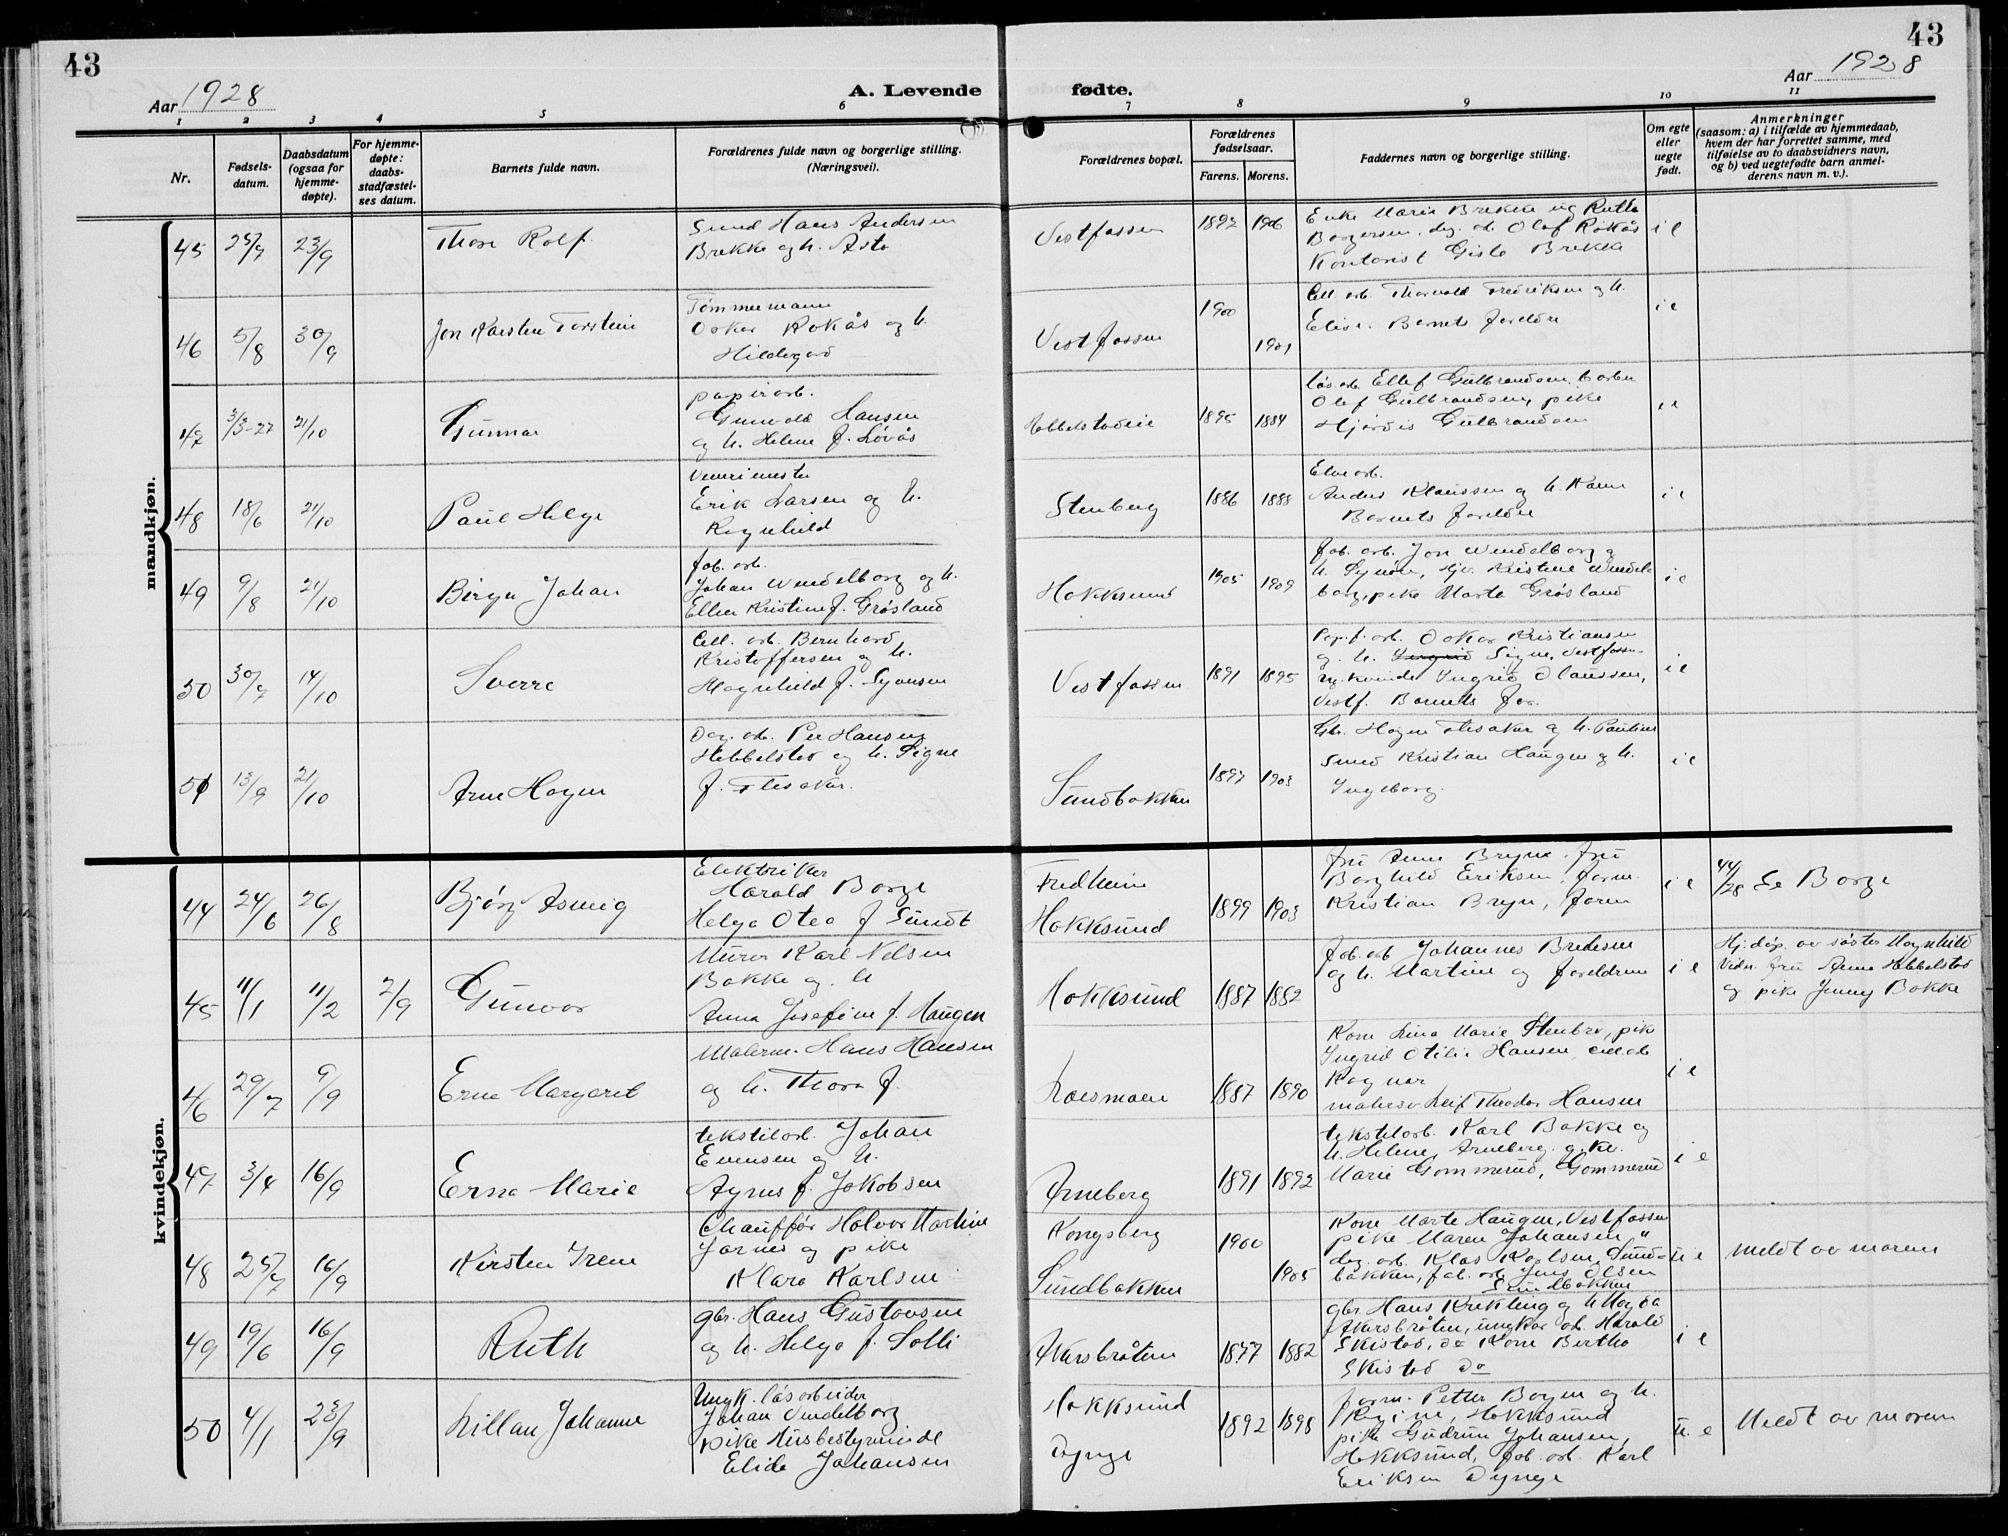 43
43
Aar 1928
A. Levende
fødte.
Aar 1928
1 2 3 4 5 6 7 8 9 10 11
Nr.
Fødsels-
datum.
Daabsdatum
(ogsaa for
hjemme-
døpte).
For hjemme-
døpte:
daabs-
stadfæstel-
ses datum.
Barnets fulde navn.
Forældrenes fulde navn og borgerlige stilling.
(Næringsvei).
Forældrenes bopæl.
Forældrenes
fødselsaar.
Farens. Morens.
Faddernes navn og borgerlige stilling.
Om egte
eller
uegte
født.
Anmerkninger
(saasom: a) i tilfælde av hjemmedaab,
hvem der har forrettet samme, med
tilføielse av to daabsvidners navn,
og b) ved uegtefødte barn anmel-
derens navn m. v.).
mandkjøn.
45 25/7 23/9 Thore Rolf
Smed Hans Andersen
Brekke og h. Asta
Vestfossen 1892 1906
Enke Maria Brekke og Ruth
Borgersen, dag. arb. Olaf Rokås
Kontorist Gisle Brekke
i e
46 5/8 30/9 Jon Karsten Torstein
Tømmermann
Oskar Rokås og h.
Hildegard
Vestfossen 1900 1901
Cell. arb. Thorvald Fredriksen og h.
Elise. Barnets foreldre
i e
47 3/3-27 21/10 Gunnar
papirarb.
Gunvald Hansen
og h. Helene f. Løvås
Hobbelstadeie 1895 1884
løsarb. Ellef Gulbrandsen,
Olaf Gulbrandsen, pike
Hjørdis Gulbrandsen
i e
48 18/6 21/10 Paul Helge
Erik Larsen og h.
Ragnhild
Stenberg 1886 1888
Elvearb.
Anders Klaussen og h. Karen
Barnets foreldre
i e
49 9/8 21/10 Birger Johan
fab. arb.
Johan Wendelborg og h.
Ellen Kristine f. Grøsland
Hokksund 1905 1909
fab. arb. Jon Wendelborg og
h. Synøve, hj. Kristine Wendel-
borg, pike Marta Grøsland
i e
50 30/7 14/10 Sverre
Cell. arb. Bernhard
Kristoffersen og h.
Magnhild f. Syversen
Vestfossen 1891 1895
Pap. f. arb. Oskar Kristiansen
og h. Ingrid Signe, Vestfossen
Ingrid Olaussen,
Vestf. Barnets far.
i e
51 13/9 21/10 Arne Hagen
Dag. arb. Per Hansen
Hobbelstad og h. Signe
f. Flesaker.
Sundbakken 1897 1903
Gbr. Hagen Flesaker og h. Pauline
Smed Kristian Haugen og h.
Ingeborg.
i e
kvindekjøn.
44 24/6 26/8 Bjørg Asmig
Elektriker
Harald Borge
Helga Otea f. Sundt
Fredheim
Hokksund 1899 1903
fru Anna Bryn, fru
Borghild Eriksen, form.
Kristian Bryn, form
i e
44/28 Se Borge
45 11/1 11/2 2/9 Gunvor
Murer Karl Nilsen
Bakke og h
Anna Josefine f. Haugen
Hokksund 1887 1882
fab. arb Johannes Bredesen
og h. Martine og foreldrene
i e
Hj. døp. av søster Magnhild
Vidn. fru Anna Hobbelstad
og pike Jenny Bakke
46 29/7 9/9 Erna Margaret
Malerm. Hans Hansen
og h. Thora f.
Loesmoen 1887 1890
Kone Lina Marie Stenbro, pike
Ingrid Otilie Hansen, cell arb
Ragnar
malersv. Leif Theodor Hansen
i e
47 3/4 16/9 Erna Marie
tekstilarb. Johan
Evensen og h.
Agnes f. Jakobsen
Arneberg 1891 1892
tekstilarb. Karl Bakke og
h. Helene, Arneberg. g. kv.
Marie Gommerud, Gommerud
i e
48 25/7 16/9 Kirsten Irene
Chauffør Halvor Martin
Jarnes og pike
Klara Karlsen
Kongsberg
Sundbakken 1900 1905
Kone Marte Haugen, Vestfossen
pike Maren Johansen "
dag. arb. Klas Karlsen, Sund-
bakken, fab. arb. Jens Olsen
Sundbakken
u e
Meldt av moren
49 19/6 16/9 Ruth
gbr. Hans Gustavsen
og h. Helga f. Solli
Akersbråten 1877 1882
gbr. Hans Krekling og h Magda
Akersbråten, ungkar arb. Harald
Skistad, do Kone Bertha
Skistad Do
i e
50 4/1 23/9 Lillan Johanne
Ungk. løsarbeider
Johan Vendelborg
pike Husbestyrerinde
Elida Johansen
Hokksund
Dynge 1892 1898
form. Petter Bogen og h.
Regine, Hokksund
pike Gudrun Johansen,
Hokksund, fab. arb. Karl
Eriksen Dynge
u. e
Meldt av moren